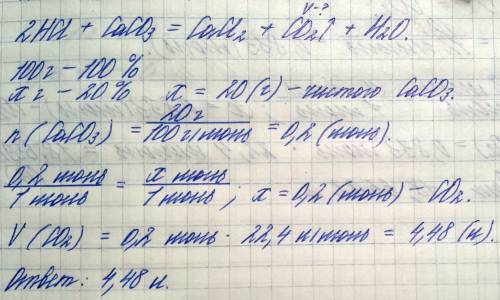 V-?
2HCl + CaCO₃ = CaCl₂ + CO₂↑ + H₂O.
100г – 100%
x г – 20% x = 20 (г) – чистого CaCO₃.
n (CaCO₃) = 20г / 100 г/моль = 0,2 (моль).
0,2 моль / 1 моль = x моль / 1 моль ; x = 0,2 (моль) – CO₂.
V (CO₂) = 0,2 моль · 22,4 л/моль = 4,48 (л).
Ответ: 4,48 л.